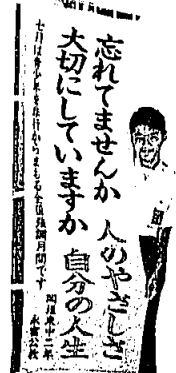 忘れてませんか 人のやさしさ
大切にしていますか 自分の人生
七月は青少年を非行からまもる全国強調月間です